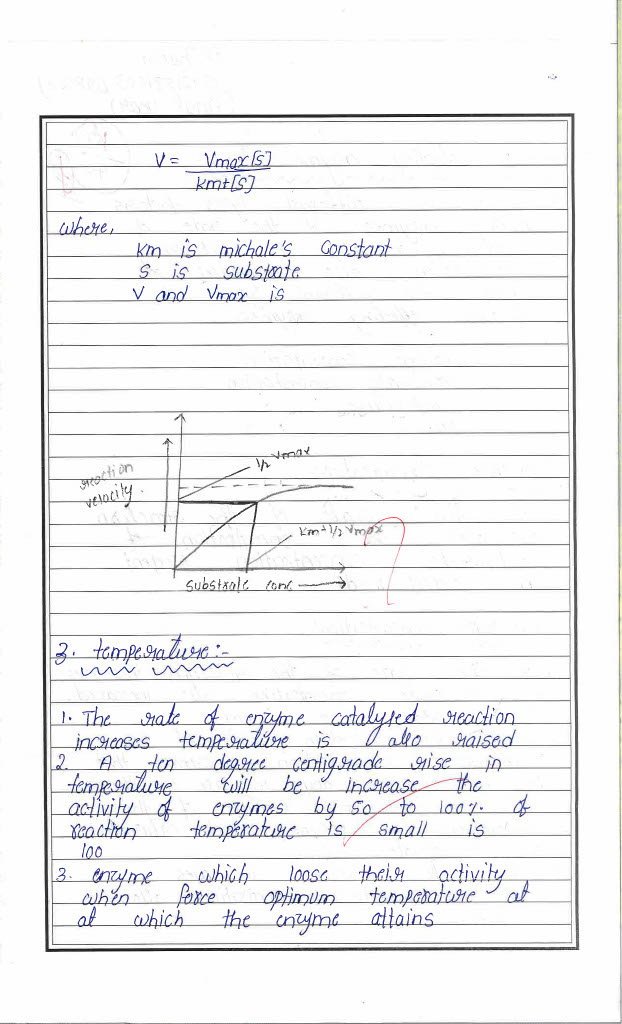 V = Vmax[S]
km+[S]
where,
km is michale's Constant
S is substrate
V and Vmax is
reaction
velocity.
1/2 Vmax
km+1/2 Vmax
substrate conc
3. temperature :-
1. The rate of enzyme catalysed reaction
increases temperature is also raised
2. A ten degree centigrade rise in
temperature will be increase the
activity of enzymes by 50 to 100%. of
reaction temperature is small is
100
3. enzyme which loose their activity
when force optimum temperature at
at which the enzyme attains